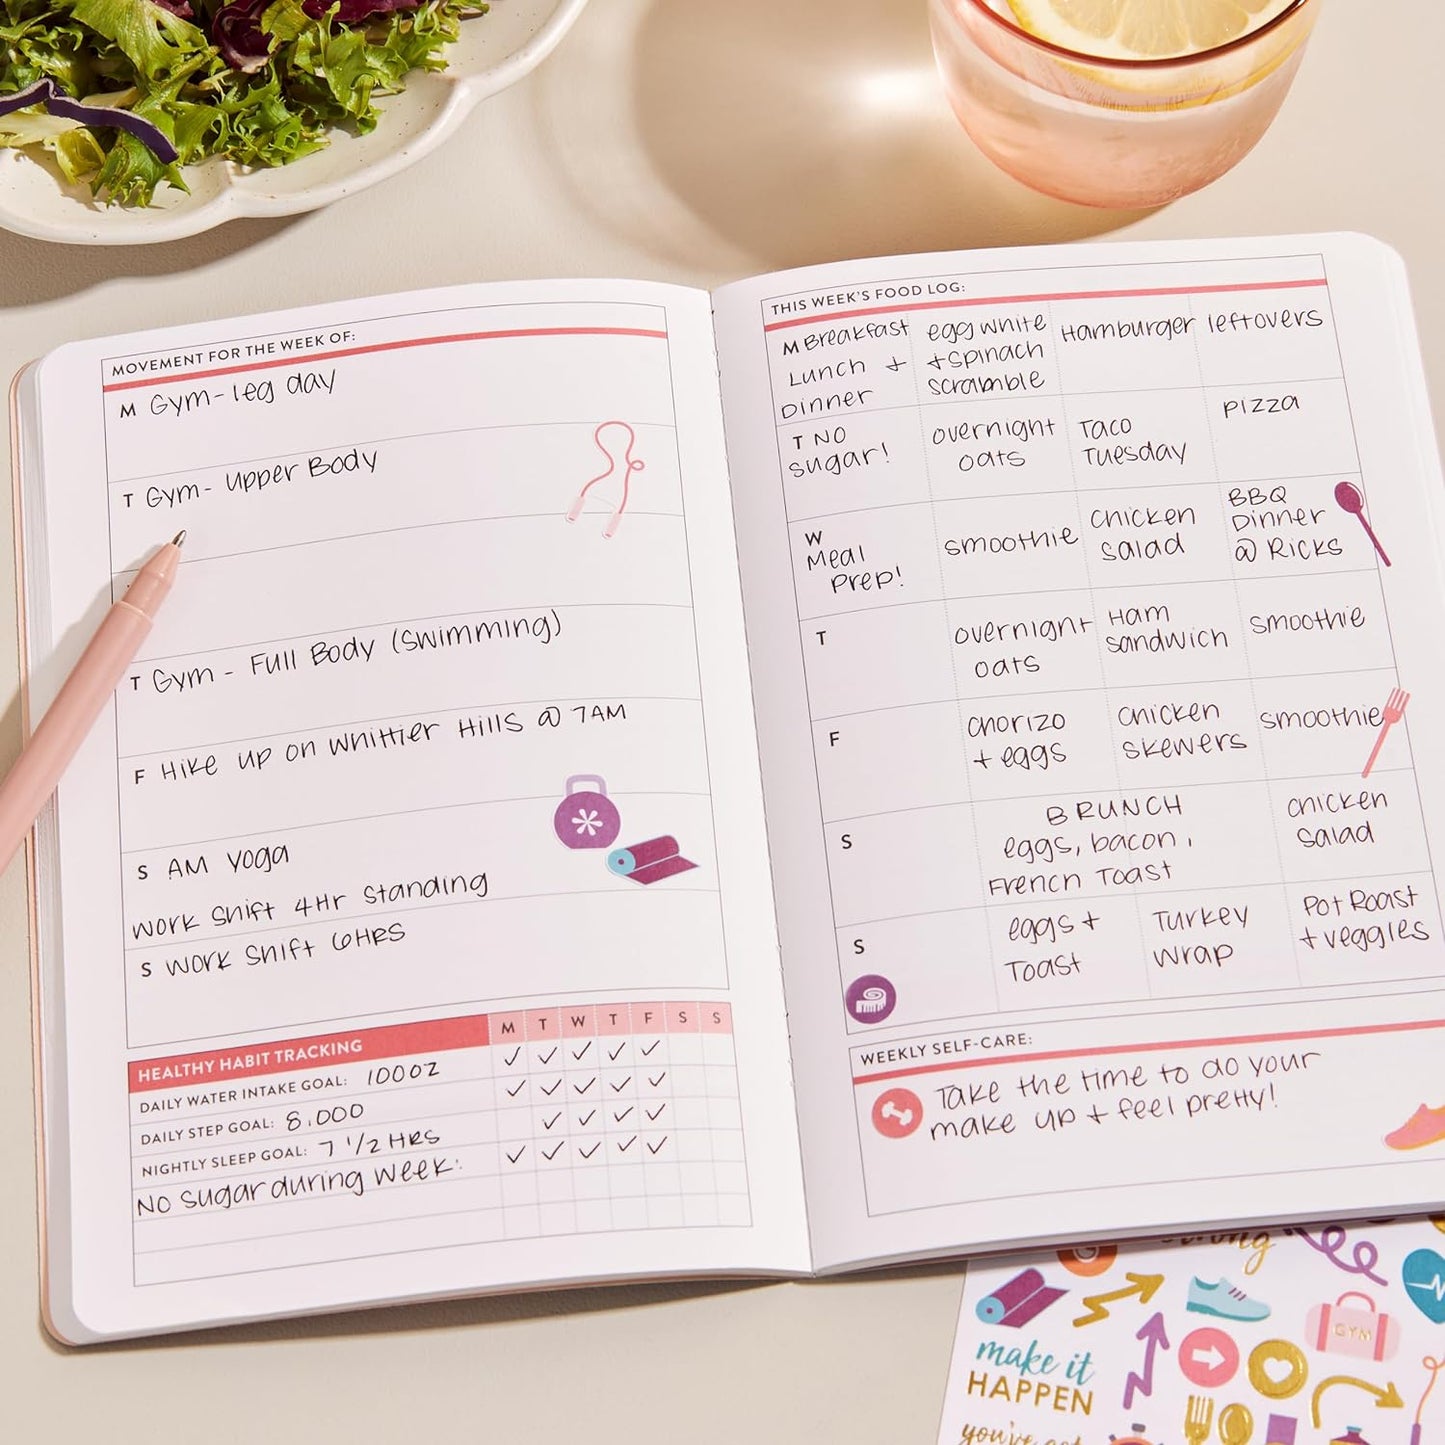 MOVEMENT FOR THE WEEK OF:
M Gym - leg day
T Gym - Upper Body
T Gym - Full Body (Swimming)
F Hike up on Whittier Hills @ 7AM
S AM Yoga
Work Shift 4Hr Standing
S Work Shift 6HRS
HEALTHY HABIT TRACKING M T W T F S S
DAILY WATER INTAKE GOAL: 100OZ ✓ ✓ ✓ ✓ ✓
DAILY STEP GOAL: 8,000 ✓ ✓ ✓ ✓ ✓
NIGHTLY SLEEP GOAL: 7 1/2 HRS ✓ ✓ ✓ ✓
NO Sugar during Week: ✓ ✓ ✓ ✓ ✓
THIS WEEK'S FOOD LOG:
M Breakfast
Lunch +
Dinner
egg white
+ spinach
scramble
Hamburger
leftovers
T NO
sugar!
overnight
oats
Taco
Tuesday
Pizza
W
Meal
Prep!
smoothie
Chicken
Salad
BBQ
Dinner
@ Ricks
T
overnight
oats
Ham
sandwich
smoothie
F
Chorizo
+ eggs
Chicken
Skewers
smoothie
S
BRUNCH
eggs, bacon,
French Toast
Chicken
Salad
S
eggs +
Toast
Turkey
Wrap
Pot Roast
+ veggies
WEEKLY SELF-CARE:
Take the time to do your
make up + feel pretty!
make it
HAPPEN
GYM
you've got